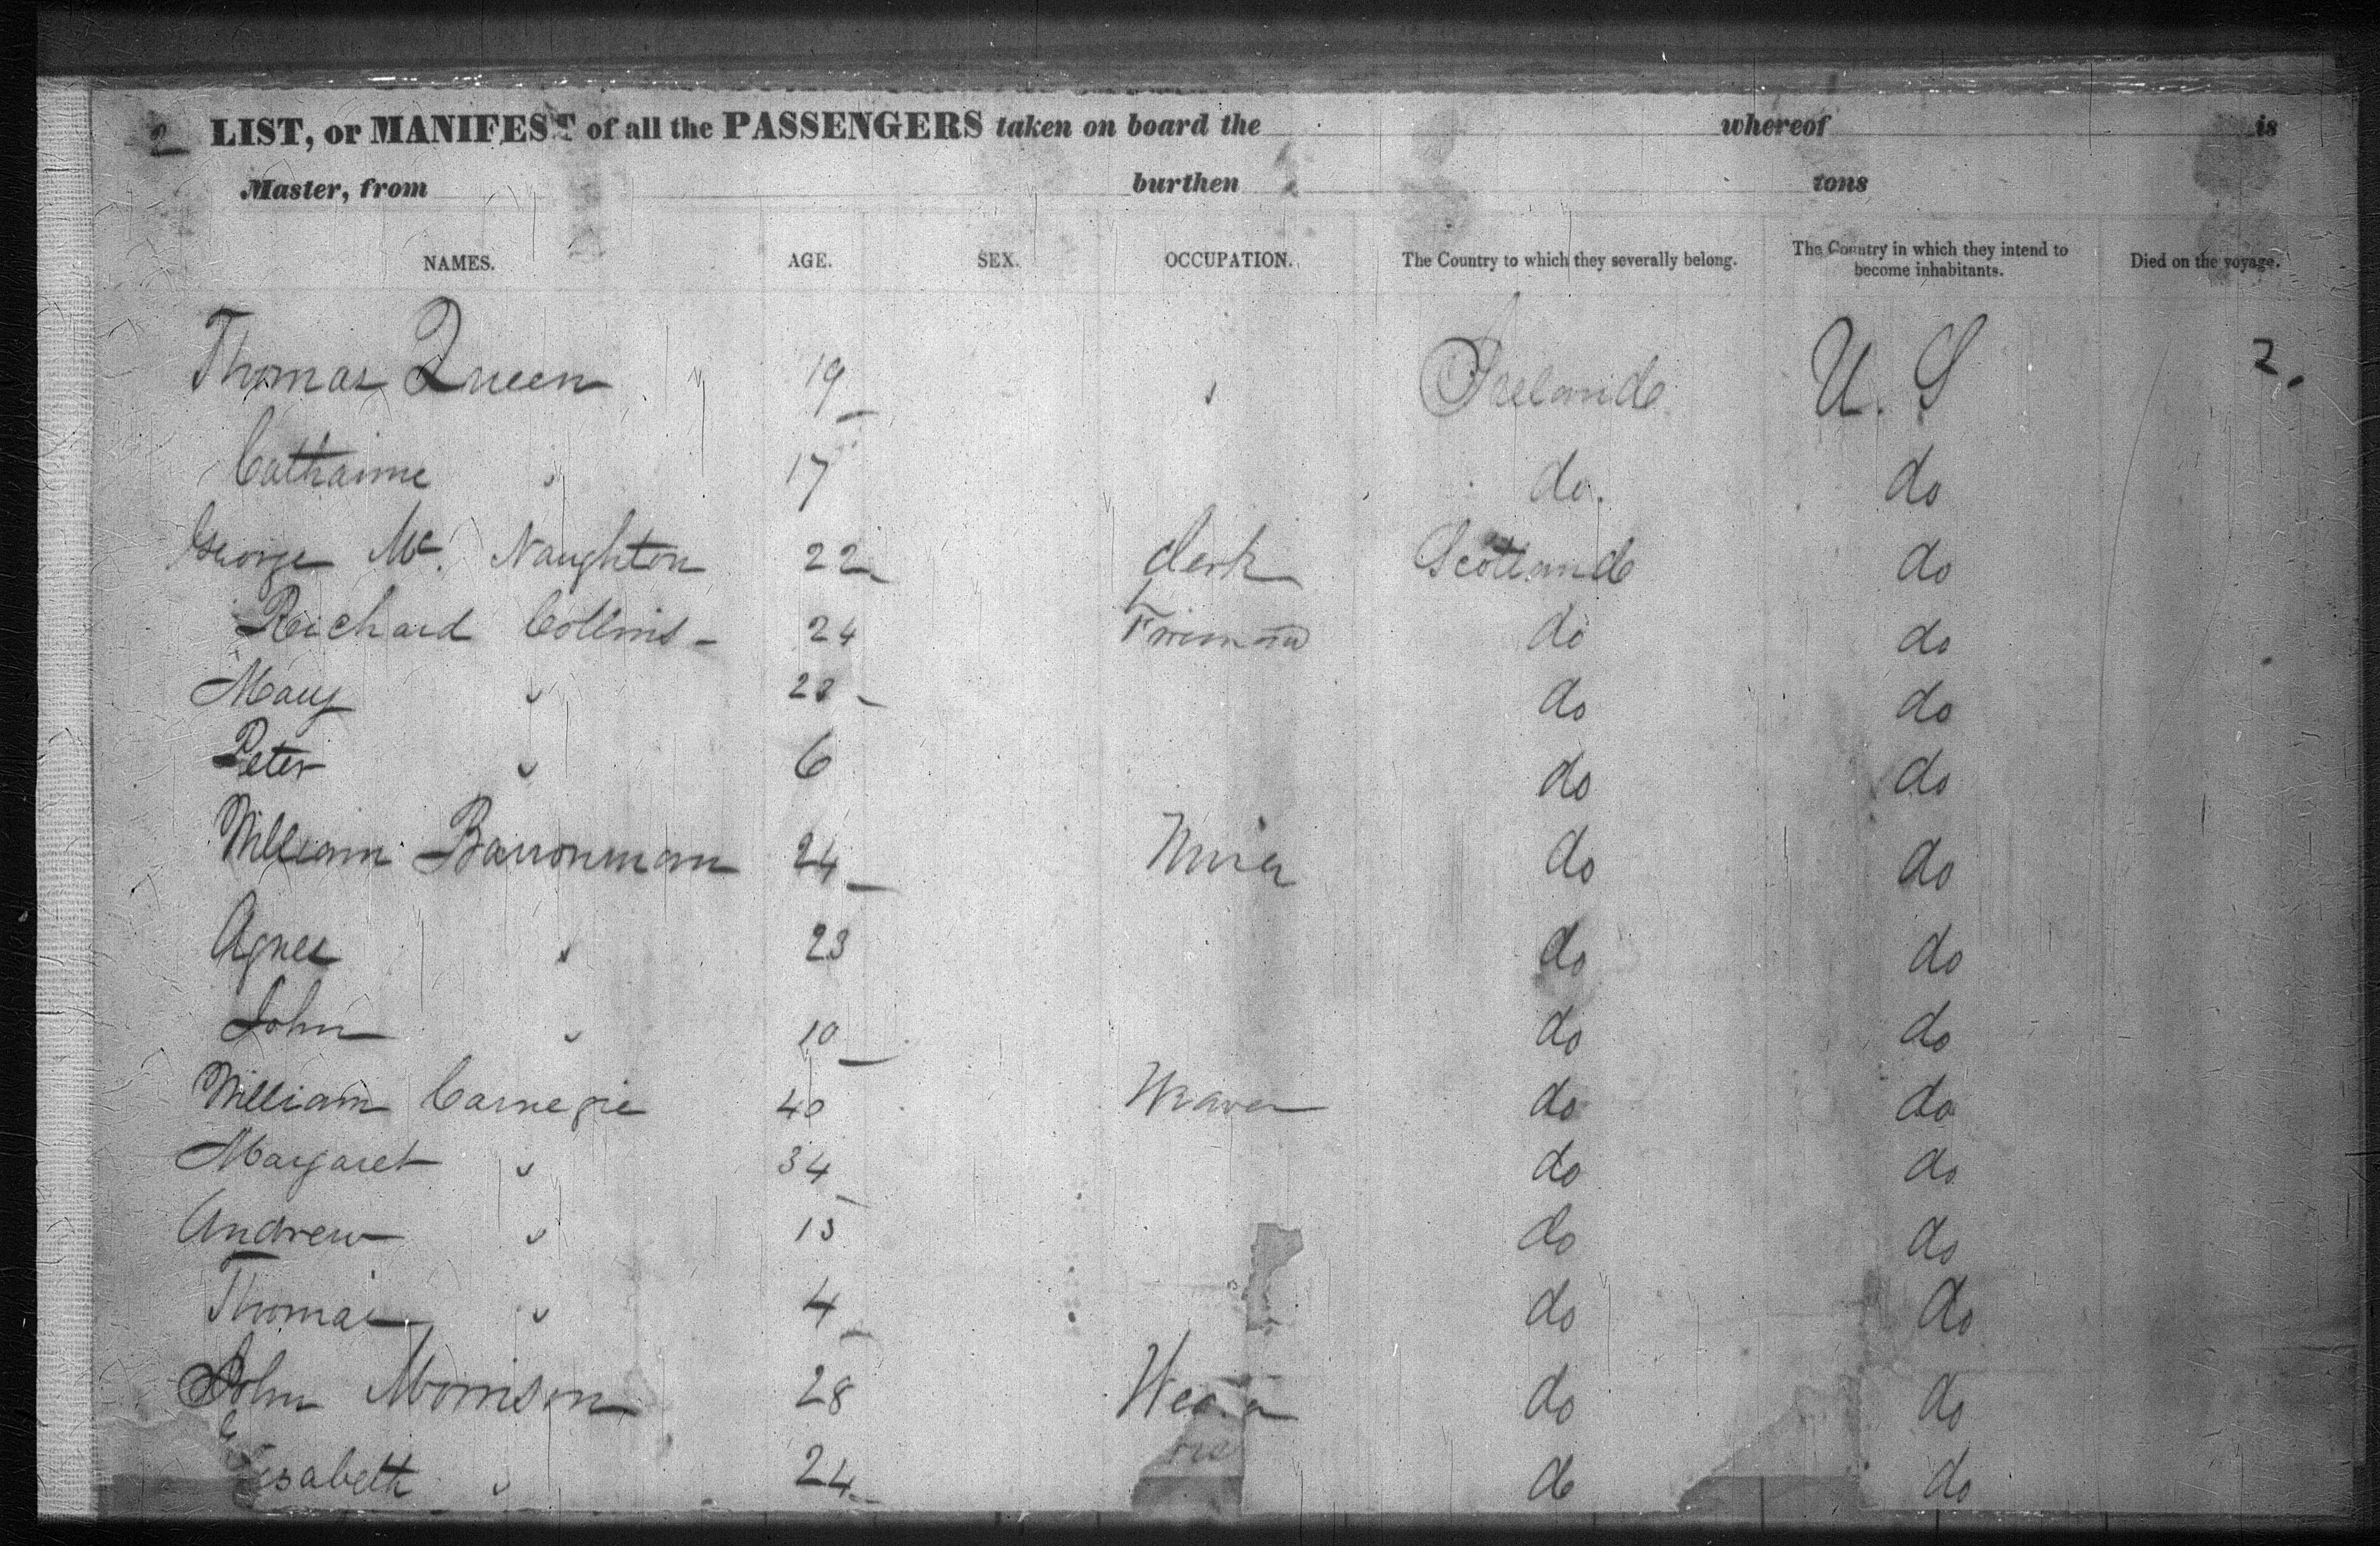 2 LIST, or MANIFEST of all the PASSENGERS taken on board the whereof is
Master, from burthen tons
NAMES. AGE. SEX. OCCUPATION. The Country to which they severally belong. The Country in which they intend to become inhabitants. Died on the voyage.
Thomas Queen 19 Ireland U. S 2.
Catharine " 17 do. do
George Mc. Naughton 22 Clerk Scotland do
Richard Collins 24 do do
Mary " do do
Peter " 6 do do
William Barronman 24 Miner do do
Agnes " 23 do do
John " 10 do do
William Carnegie 40 Weaver do do
Margaret " 34 do do
Andrew " 13 do do
Thomas " 4 do do
John Morrison 28 do do
24 do do